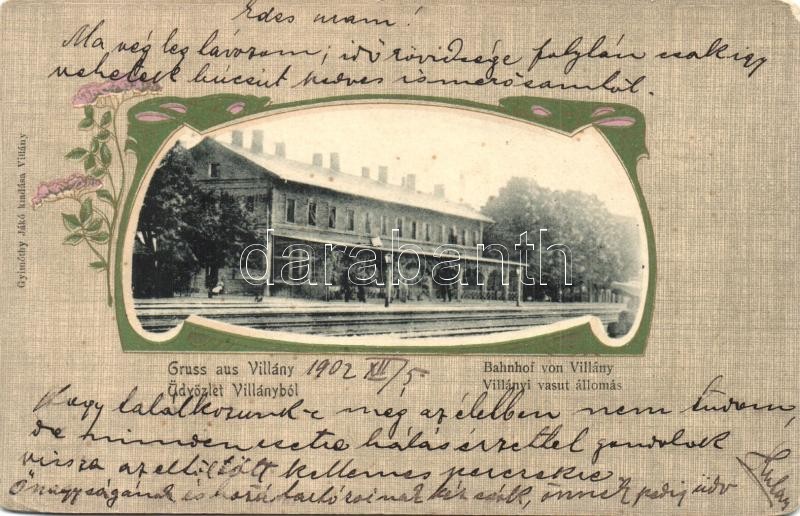 Édes uram!
Ma vég leg távozom; idő rövidsége folytán csak így
vehetek búcsút kedves ismerősömtől.
Gyimóthy Jákó kiadása Villány
darabanth
Gruss aus Villány
Üdvözlet Villányból
1902 XII/5
Bahnhof von Villány
Villányi vasut állomás
Hogy találkozunk-e még az életben nem tudom,
de mindenesetre hálás érzettel gondolok
vissza az eltöltött kellemes percekre
Őnagyságának és hozzátartozóinak kéz csók, önnek pedig üdv